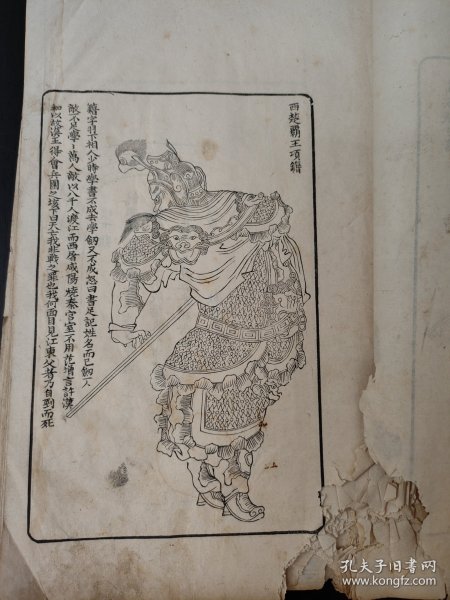 西楚霸王項籍
籍字羽下相人少時學書不成去學劒又不成怒曰書足記姓名而已劒一人
敵不足學〻萬人敵以八千人渡江而西屠咸陽燒秦宮室不用范增言許漢
和以故漢王得會兵圍之垓下曰天亡我非戰之罪也我何面目見江東父老乃自刎而死
孔夫子旧书网
www.kongfz.com